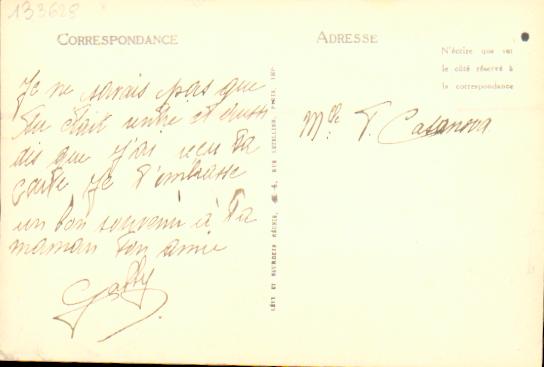 133628
CORRESPONDANCE
ADRESSE
N'écrire que sur
le côté réservé à
la correspondance
Je ne savais pas que
tu était rentré et aussi
dis que j'ai reçu ta
carte je t'embrasse
un bon souvenir à ta
maman ton amie
Gaby
Mlle T. Casanova
LÉVY ET NEURDEIN RÉUNIS, 44, RUE LETELLIER, PARIS, IMP.